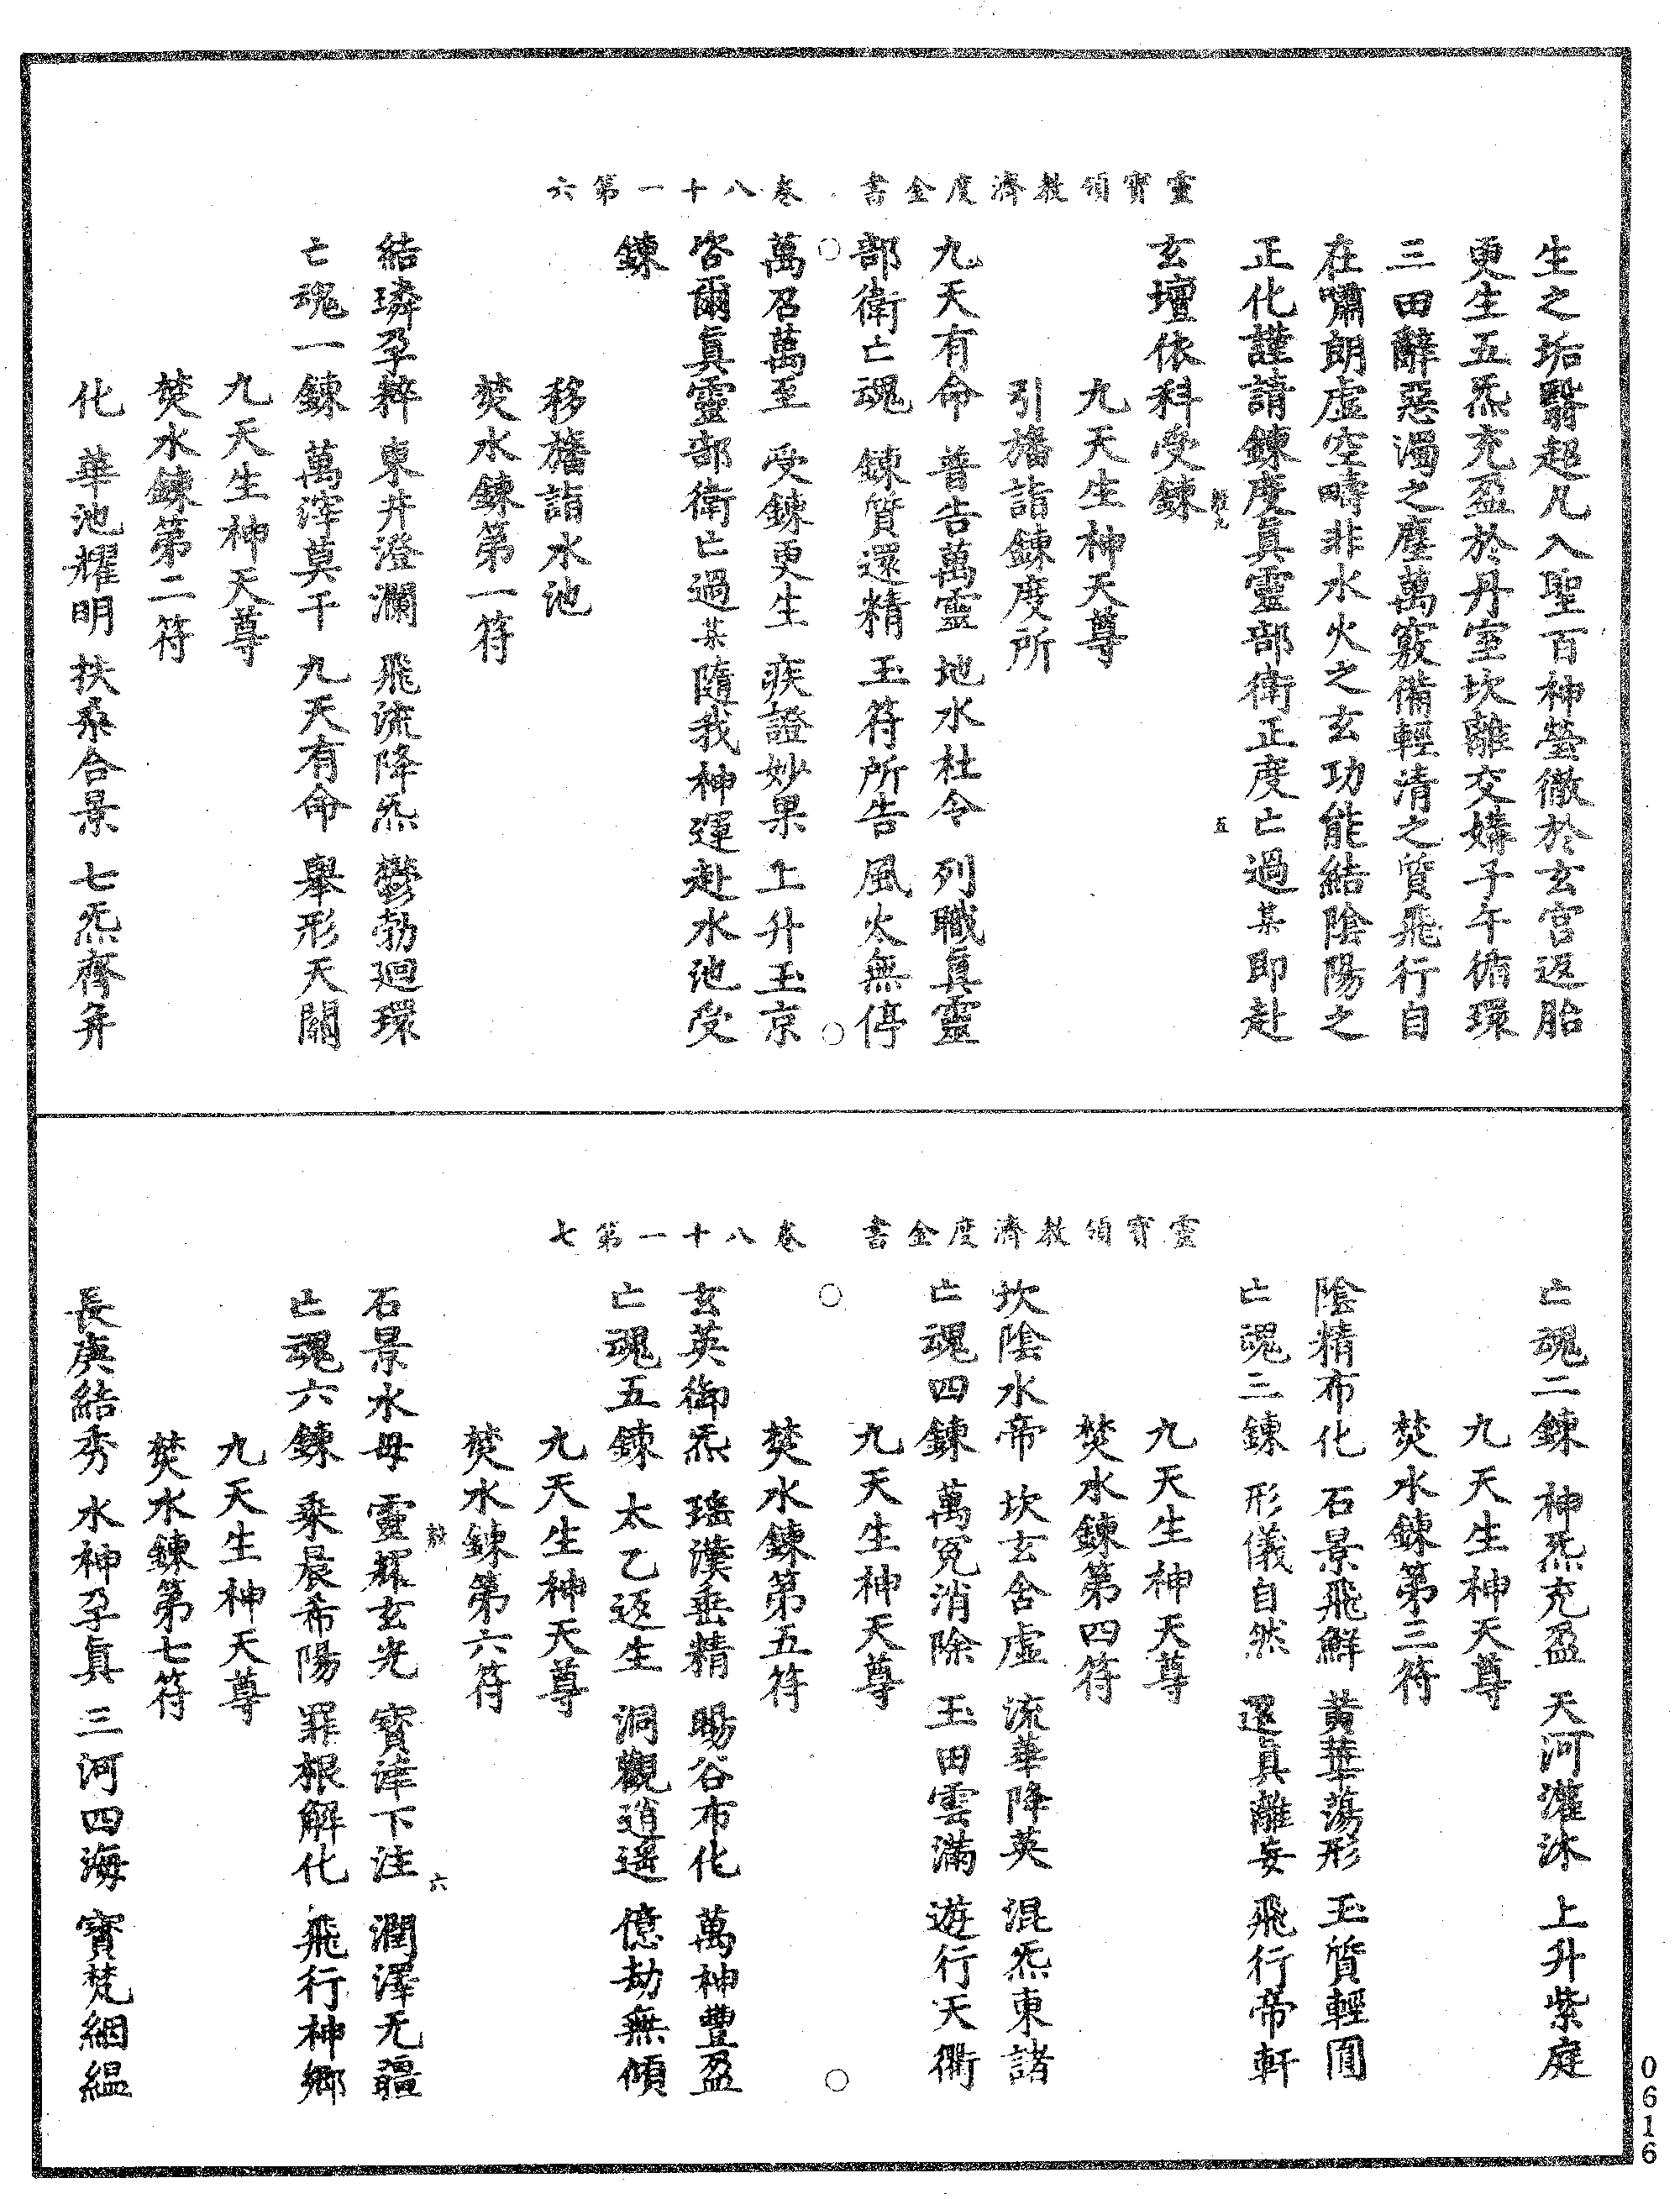 靈寶領教濟度金書　卷八十一第六
生之垢翳超凡入聖百神瑩徹於玄宮返胎
更生五炁充盈於丹室坎離交媾子午循環
三田辭惡濁之塵萬竅備輕清之質飛行自
在嘯朗虛空疇非水火之玄功能結陰陽之
正化謹請鍊度真靈部衛正度亡過某即赴
五
玄壇依科受鍊
九天生神天尊
引旛詣鍊度所
九天有命　普告萬靈　地水社令　列職真靈
部衛亡魂　鍊質還精　玉符所告　風火無停
萬召萬至　受鍊更生　疾證妙果　上升玉京
咨爾真靈部衛亡過某隨我神運赴水池受
鍊
移旛詣水池
焚水鍊第一符
結璘孕粹　東井澄瀾　飛流降炁　鬱勃迴環
亡魂一鍊　萬滓莫干　九天有命　舉形天關
九天生神天尊
焚水鍊第二符
化　華池耀明　扶桑合景　七炁齊并
靈寶領教濟度金書　卷八十一第七
亡魂二鍊　神炁充盈　天河灌沐　上升紫庭
九天生神天尊
焚水鍊第三符
陰精布化　石景飛鮮　黃華蕩形　玉質輕圓
亡魂三鍊　形儀自然　還真離妄　飛行帝軒
九天生神天尊
焚水鍊第四符
坎陰水帝　坎玄舍虛　流華降英　混炁東諸
亡魂四鍊　萬冤消除　玉田雲滿　遊行天衢
九天生神天尊
焚水鍊第五符
玄英御炁　瑤漢垂精　暘谷布化　萬神豐盈
亡魂五鍊　太乙返生　洞觀逍遙　億劫無傾
九天生神天尊
焚水鍊第六符
六
石景水母　靈輝玄光　寶津下注　潤澤无疆
亡魂六鍊　乘晨希陽　罪根解化　飛行神鄉
九天生神天尊
焚水鍊第七符
長庚結秀　水神孕真　三河四海　寶梵絪縕
0616